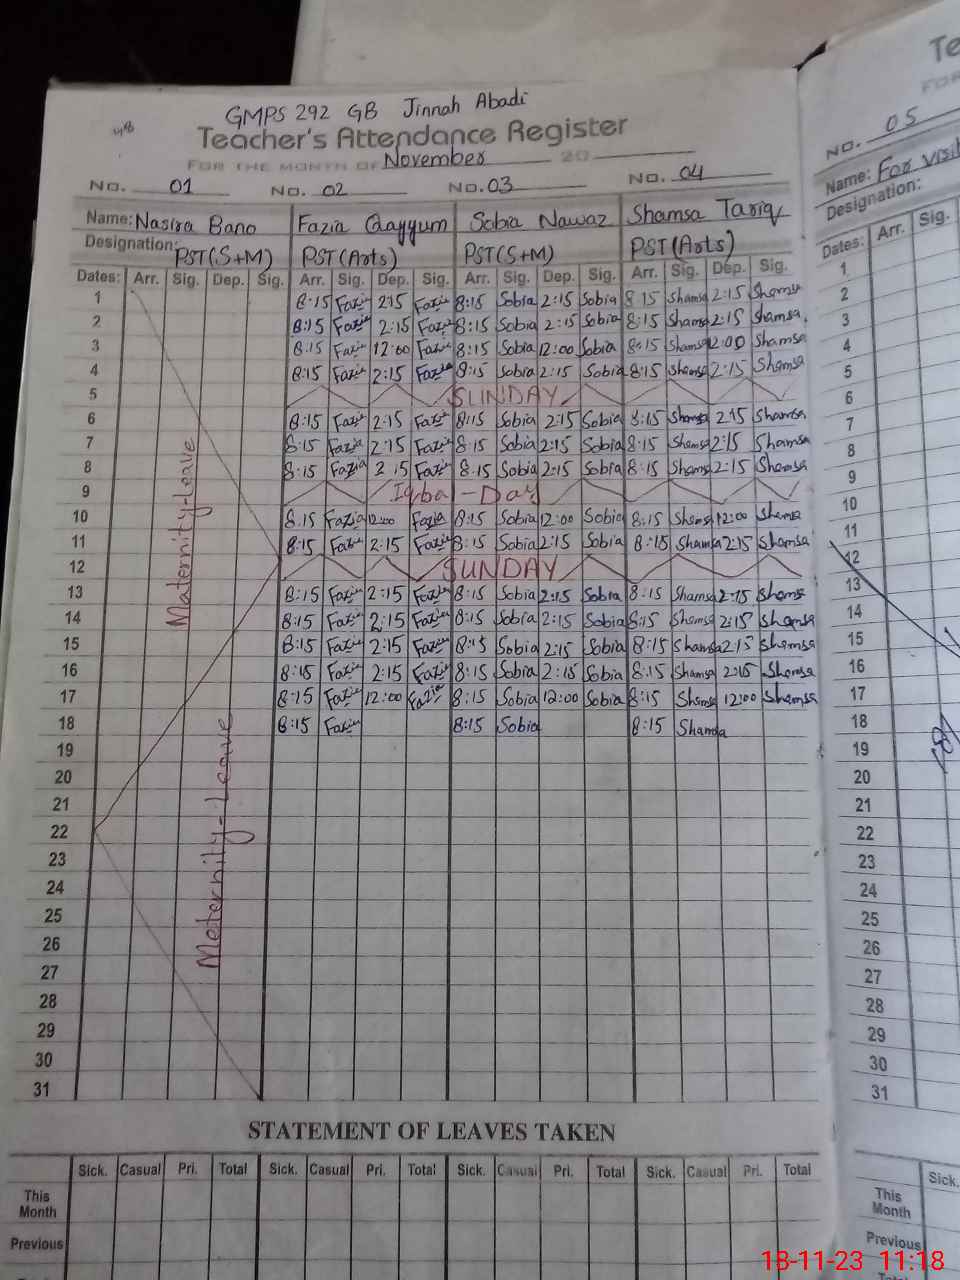 GMPS 292 GB Jinnah Abadi
Teacher's Attendance Register
FOR THE MONTH OF November 20
No. 01 No. 02 No. 03 No. 04
Name: Nasira Bano Fazia Qayyum Sobia Nawaz Shamsa Tariq
Designation: PST(S+M) PST(Arts) PST(S+M) PST(Arts)
Dates: Arr. Sig. Dep. Sig. Arr. Sig. Dep. Sig. Arr. Sig. Dep. Sig. Arr. Sig. Dep. Sig.
1 8:15 Fazia 2:15 Fazia 8:15 Sobia 2:15 Sobia 8:15 Shamsa 2:15 Shamsa
2 8:15 Fazia 2:15 Fazia 8:15 Sobia 2:15 Sobia 8:15 Shamsa 2:15 Shamsa
3 8:15 Fazia 12:00 Fazia 8:15 Sobia 12:00 Sobia 8:15 Shamsa 12:00 Shamsa
4 8:15 Fazia 2:15 Fazia 8:15 Sobia 2:15 Sobia 8:15 Shamsa 2:15 Shamsa
5 SUNDAY
6 8:15 Fazia 2:15 Fazia 8:15 Sobia 2:15 Sobia 8:15 Shamsa 2:15 Shamsa
7 8:15 Fazia 2:15 Fazia 8:15 Sobia 2:15 Sobia 8:15 Shamsa 2:15 Shamsa
8 8:15 Fazia 2:15 Fazia 8:15 Sobia 2:15 Sobia 8:15 Shamsa 2:15 Shamsa
9 Iqbal-Day
10 8:15 Fazia 12:00 Fazia 8:15 Sobia 12:00 Sobia 8:15 Shamsa 12:00 Shamsa
11 8:15 Fazia 2:15 Fazia 8:15 Sobia 2:15 Sobia 8:15 Shamsa 2:15 Shamsa
12 SUNDAY
13 8:15 Fazia 2:15 Fazia 8:15 Sobia 2:15 Sobia 8:15 Shamsa 2:15 Shamsa
14 8:15 Fazia 2:15 Fazia 8:15 Sobia 2:15 Sobia 8:15 Shamsa 2:15 Shamsa
15 8:15 Fazia 2:15 Fazia 8:15 Sobia 2:15 Sobia 8:15 Shamsa 2:15 Shamsa
16 8:15 Fazia 2:15 Fazia 8:15 Sobia 2:15 Sobia 8:15 Shamsa 2:15 Shamsa
17 8:15 Fazia 12:00 Fazia 8:15 Sobia 12:00 Sobia 8:15 Shamsa 12:00 Shamsa
18 8:15 Fazia 8:15 Sobia 8:15 Shamsa
19
20
21
22
23
24
25
26
27
28
29
30
31
Maternity-Leave
Maternity-Leave
STATEMENT OF LEAVES TAKEN
Sick. Casual Pri. Total Sick. Casual Pri. Total Sick. Casual Pri. Total Sick. Casual Pri. Total
This
Month
Previous
No. 05
Name: For
Designation:
Dates: Arr. Sig.
1
2
3
4
5
6
7
8
9
10
11
12
13
14
15
16
17
18
19
20
21
22
23
24
25
26
27
28
29
30
31
Sick.
This
Month
Previous
18-11-23 11:18